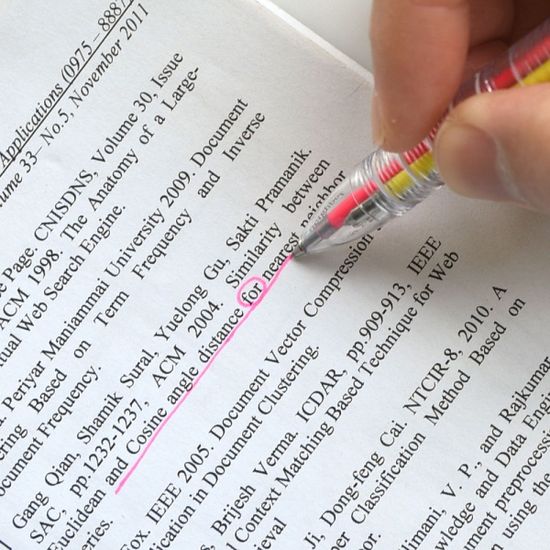 Applications (0975 – 8887)
ume 33– No.5, November 2011
e Page, CNISDNS, Volume 30, Issue
ACM 1998. The Anatomy of a Large-
tual Web Search Engine.
Periyar Maniammai University 2009. Document
ering Based on Term Frequency and Inverse
ocument Frequency.
Gang Qian, Shamik Sural, Yuelong Gu, Sakti Pramanik.
SAC, pp.1232-1237, ACM 2004. Similarity between
Euclidean and Cosine angle distance for nearest neighbor
eries.
Fox. IEEE 2005. Document Vector Compression
lication in Document Clustering.
s, Brijesh Verma. ICDAR, pp.909-913, IEEE
l Context Matching Based Technique for Web
ieval
Ji, Dong-feng Cai. NTCIR-8, 2010. A
per Classification Method Based on
limani, V. P., and Rajkumar
wledge and Data Engin
ment preprocessin
n using the